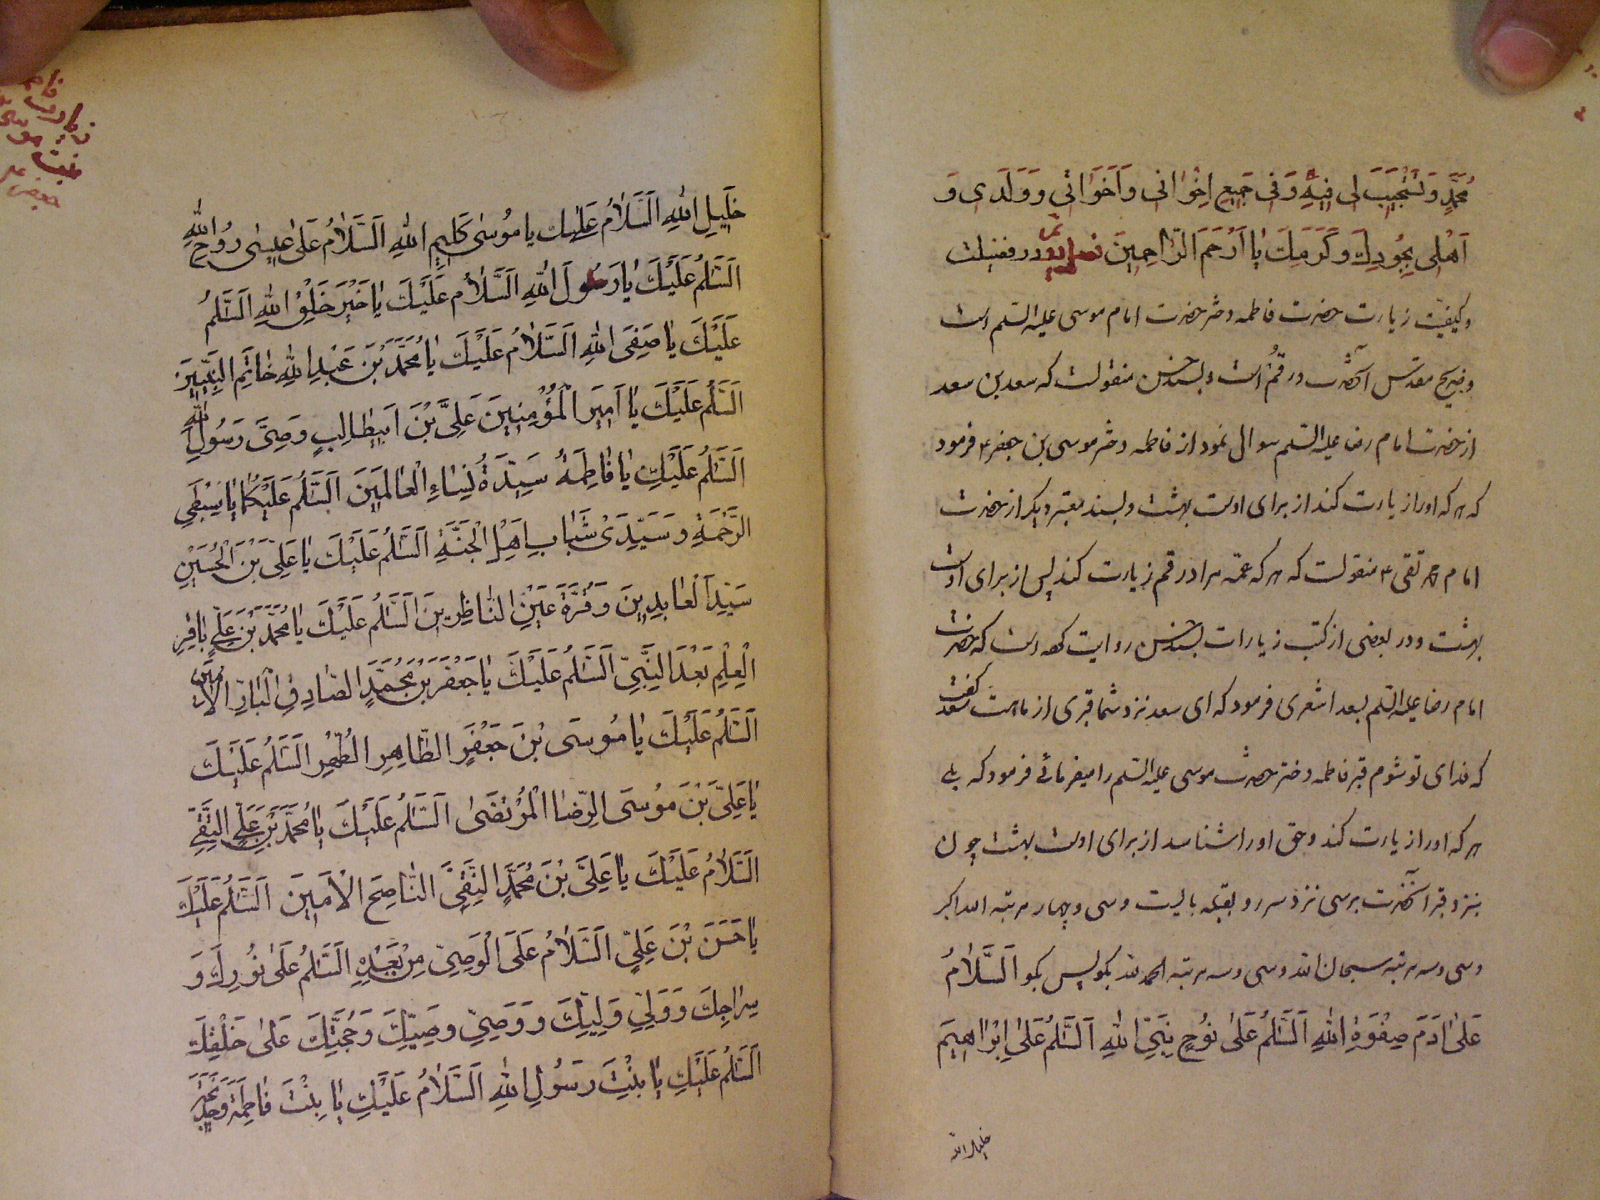 محمد و تستجیب لی فیه و فی جمیع اخوانی و اخواتی و ولدی و
اهلی بجودک و کرمک یا ارحم الراحمین فصل در فضیلت
و کیفیت زیارت حضرت فاطمه دختر حضرت امام موسی علیه السلم است
و ضریح مقدس آنحضرت در قم است و بسند حسن منقولست که سعد بن سعد
از حضرت امام رضا علیه السلم سوال نمود از فاطمه دختر موسی بن جعفر ع فرمود
که هر که او را زیارت کند از برای اوست بهشت و بسند معتبر دیگر از حضرت
امام محمد تقی ع منقولست که هر که عمه مرا در قم زیارت کند پس از برای اوست
بهشت و در بعضی از کتب زیارات بسند حسن روایت کرده است که حضرت
امام رضا علیه السلم بسعد اشعری فرمود که ای سعد نزد شما قبری از ما هست سعد گفت
که فدای تو شوم قبر فاطمه دختر حضرت موسی علیه السلم را میفرمائی فرمود که بلی
هر که او را زیارت کند و حق او را شناسد از برای اوست بهشت چون
بنزد قبر آنحضرت برسی نزد سر رو بقبله بایست و سی و چهار مرتبه الله اکبر
و سی و سه مرتبه سبحان الله و سی و سه مرتبه الحمد لله بگو پس بگو اَلسَّلٰامُ
عَلیٰ اٰدَمَ صِفْوَةِ اللهِ اَلسَّلٰمُ عَلیٰ نُوحٍ نَبِیِّ اللهِ اَلسَّلٰمُ عَلیٰ اِبْرٰاهِیمَ
خلیل الله
زیارت فاطمه
بنت موسی
جعفر ع
خَلِیلِ اللهِ اَلسَّلٰامُ عَلَیْكَ یا مُوسیٰ كَلِیمِ اللهِ اَلسَّلٰامُ عَلیٰ عِیسیٰ رُوحِ اللهِ
اَلسَّلٰمُ عَلَیْكَ یٰا رَسُولَ اللهِ اَلسَّلٰامُ عَلَیْكَ یٰا خَیْرَ خَلْقِ اللهِ اَلسَّلٰمُ
عَلَیْكَ یٰا صَفِیَّ اللهِ اَلسَّلٰامُ عَلَیْكَ یٰا مُحَمَّدَ بْنَ عَبْدِ اللهِ خٰاتَمِ النَّبِیِّینَ
اَلسَّلٰمُ عَلَیْكَ یٰا اَمِیرَ الْمُؤْمِنِینَ عَلِیَّ بْنَ اَبِیطٰالِبٍ وَصِیَّ رَسُولِ اللهِ
اَلسَّلٰمُ عَلَیْكِ یٰا فٰاطِمَةُ سَیِّدَةُ نِسٰاءِ الْعٰالَمِینَ اَلسَّلٰمُ عَلَیْكُمٰا یٰا سِبْطَیِ
الرَّحْمَةِ وَ سَیِّدَیْ شَبٰابِ اَهْلِ الْجَنَّةِ اَلسَّلٰمُ عَلَیْكَ یٰا عَلِیَّ بْنَ الْحُسَیْنِ
سَیِّدَ الْعٰابِدِینَ وَ قُرَّةَ عَیْنِ النّٰاظِرِینَ اَلسَّلٰمُ عَلَیْكَ یٰا مُحَمَّدَ بْنَ عَلِیٍّ بٰاقِرِ
الْعِلْمِ بَعْدَ النَّبِیِّ اَلسَّلٰمُ عَلَیْكَ یٰا جَعْفَرَ بْنَ مُحَمَّدٍ الصّٰادِقِ الْبٰارِّ الْاَمِینِ
اَلسَّلٰمُ عَلَیْكَ یٰا مُوسَی بْنَ جَعْفَرٍ الطّٰاهِرِ الطُّهْرِ اَلسَّلٰمُ عَلَیْكَ
یٰا عَلِیَّ بْنَ مُوسَی الرِّضَا الْمُرْتَضیٰ اَلسَّلٰمُ عَلَیْكَ یٰا مُحَمَّدَ بْنَ عَلِیٍّ التَّقِیِّ
اَلسَّلٰامُ عَلَیْكَ یٰا عَلِیَّ بْنَ مُحَمَّدٍ النَّقِیَّ النّٰاصِحَ الْاَمِینَ اَلسَّلٰمُ عَلَیْكَ
یٰا حَسَنَ بْنَ عَلِیٍّ اَلسَّلٰامُ عَلَی الْوَصِیِّ مِنْ بَعْدِهِ اَلسَّلٰمُ عَلیٰ نُورِكَ وَ
سِرٰاجِكَ وَ وَلِیِّ وَلِیِّكَ وَ وَصِیِّ وَصِیِّكَ وَ حُجَّتِكَ عَلیٰ خَلْقِكَ
اَلسَّلٰمُ عَلَیْكِ یٰا بِنْتَ رَسُولِ اللهِ اَلسَّلٰامُ عَلَیْكِ یٰا بِنْتَ فٰاطِمَةَ وَ خَدِیجَةَ